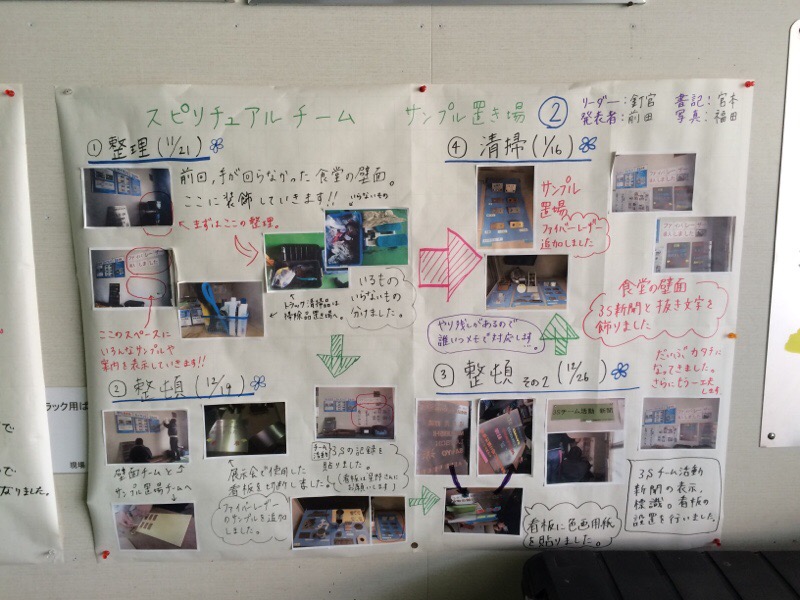 スピリチュアルチーム サンプル置き場 ②
リーダー:釘宮 書記:宮本
発表者:前田 写真:福田
① 整理(11/21)
前回、手が回らなかった食堂の壁面。
ここに装飾していきます!!
いらないもの
まずはここの整理。
トラック清掃品は
掃除品置き場へ。
いるもの
いらないもの
分けました。
ここのスペースに
いろんなサンプルや
案内を表示していきます!!
② 整頓(12/19)
壁面チームと
サンプル置場チームへ
展示会で使用した
看板を切断しました。
ファイバーレーザー
のサンプルを追加
しました。
チーム活動
3Sの記録を
貼りました。
③ 整頓 その2(12/26)
3Sチーム活動 新聞
看板に色画用紙
を貼りました。
3Sチーム活動
新聞の表示、
標識。看板の
設置を行いました。
④ 清掃(1/16)
サンプル
置場
ファイバーレーザー
追加しました
やり残しがあるので
誰いつメモで対応します。
食堂の壁面
3S新聞と抜き文字を
飾りました
だいぶカタチに
なってきました。
さらにもう一工夫
します
ラック用は
現場
で
なりました。